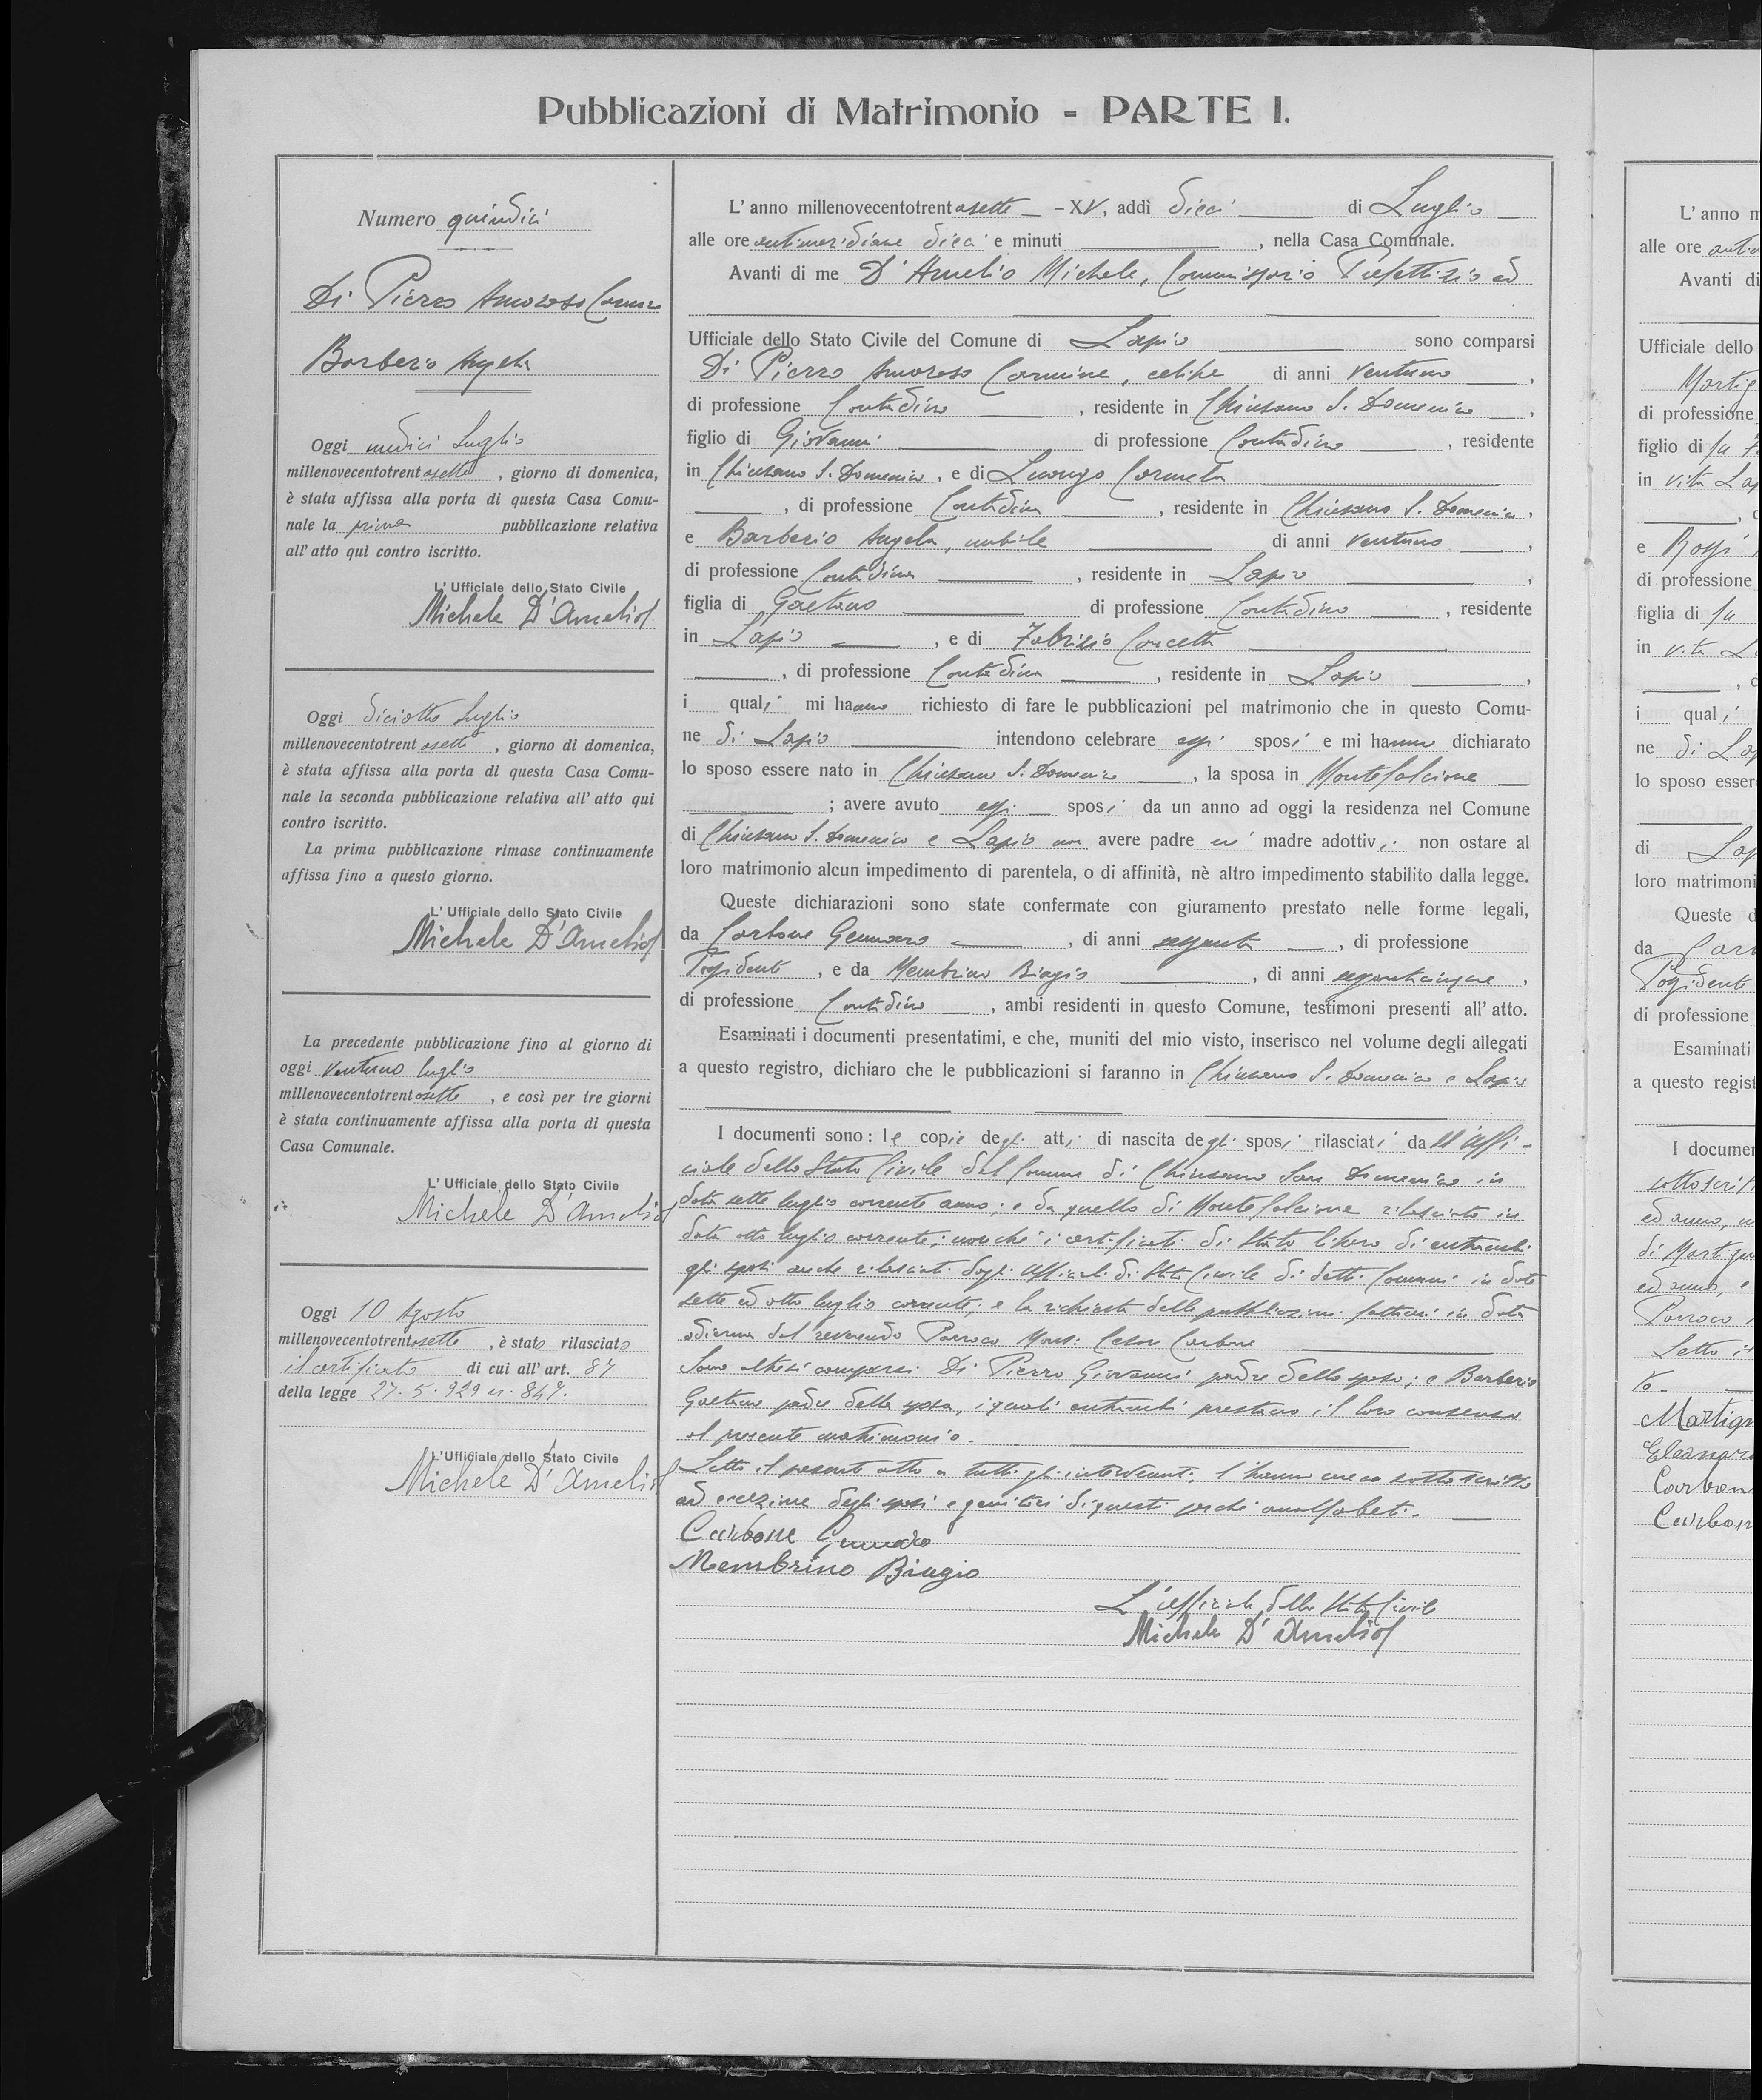 Pubblicazioni di Matrimonio - PARTE I.
Numero quindici
Di Pierro Amoroso Carmine
Barberio Angela
Oggi undici Luglio
millenovecentotrentasette, giorno di domenica,
è stata affissa alla porta di questa Casa Comu-
nale la prima pubblicazione relativa
all'atto qui contro iscritto.
L'Ufficiale dello Stato Civile
Michele D'Amelio
Oggi diciotto Luglio
millenovecentotrentasette, giorno di domenica,
è stata affissa alla porta di questa Casa Comu-
nale la seconda pubblicazione relativa all'atto qui
contro iscritto.
La prima pubblicazione rimase continuamente
affissa fino a questo giorno.
L'Ufficiale dello Stato Civile
Michele D'Amelio
La precedente pubblicazione fino al giorno di
oggi ventuno luglio
millenovecentotrentasette, e così per tre giorni
è stata continuamente affissa alla porta di questa
Casa Comunale.
L'Ufficiale dello Stato Civile
Michele D'Amelio
Oggi 10 Agosto
millenovecentotrentasette, è stato rilasciato
il certificato di cui all'art. 87
della legge 27.5.929 n. 847.
L'Ufficiale dello Stato Civile
Michele D'Amelio
L'anno millenovecentotrentasette - XV, addì dieci di Luglio
alle ore antimeridiane dieci e minuti , nella Casa Comunale.
Avanti di me D'Amelio Michele, Commissario Prefettizio ed
Ufficiale dello Stato Civile del Comune di Lapio sono comparsi
Di Pierro Amoroso Carmine, celibe di anni ventuno ,
di professione Contadino , residente in Chiusano S. Domenico ,
figlio di Giovanni di professione Contadino , residente
in Chiusano S. Domenico, e di Luongo Carmela
, di professione Contadina , residente in Chiusano S. Domenico,
e Barberio Angela, nubile di anni ventuno ,
di professione Contadina , residente in Lapio ,
figlia di Gaetano di professione Contadino , residente
in Lapio , e di Fabrizio Concetta
, di professione Contadina , residente in Lapio ,
i quali mi hanno richiesto di fare le pubblicazioni pel matrimonio che in questo Comu-
ne di Lapio intendono celebrare essi sposi e mi hanno dichiarato
lo sposo essere nato in Chiusano S. Domenico , la sposa in Montefalcione
; avere avuto essi sposi da un anno ad oggi la residenza nel Comune
di Chiusano S. Domenico e Lapio non avere padre nè madre adottivi, non ostare al
loro matrimonio alcun impedimento di parentela, o di affinità, nè altro impedimento stabilito dalla legge.
Queste dichiarazioni sono state confermate con giuramento prestato nelle forme legali,
da Carbone Gennaro , di anni sessanta , di professione
Possidente , e da Membrino Biagio , di anni sessantacinque ,
di professione Contadino , ambi residenti in questo Comune, testimoni presenti all'atto.
Esaminati i documenti presentatimi, e che, muniti del mio visto, inserisco nel volume degli allegati
a questo registro, dichiaro che le pubblicazioni si faranno in Chiusano S. Domenico e Lapio
I documenti sono: le copie degli atti di nascita degli sposi rilasciati dall'Uffi-
ciale dello Stato Civile del Comune di Chiusano San Domenico in
data sette luglio corrente anno; e da quello di Montefalcione rilasciato in
data otto luglio corrente; nonchè i certificati di Stato libero di entrambi
gli sposi anche rilasciati dagli Ufficiali di Stato Civile di detti Comuni in data
sette ed otto luglio corrente; e la richiesta delle pubblicazioni fattami in data
odierna dal reverendo Parroco Mons: Cesar Carbone
Sono altresì comparsi Di Pierro Giovanni padre dello sposo; e Barberio
Gaetano padre della sposa, i quali entrambi prestano il loro consenso
al presente matrimonio.
Letto il presente atto a tutti gli intervenuti, l'hanno meco sottoscritto
ad eccezione degli sposi e genitori di questi perchè analfabeti.
Carbone Gennaro
Membrino Biagio
L'Ufficiale dello Stato Civile
Michele D'Amelio
L'anno m
alle ore
Avanti di
Ufficiale dello
di professione
figlio di fu
in vita
e Rossi
di professione
figlia di fu
in vita
i quali
ne di
lo sposo esser
di
loro matrimoni
Queste d
da
Possidente
di professione
Esaminati
a questo regist
I documen
di
Parroco
Letto il